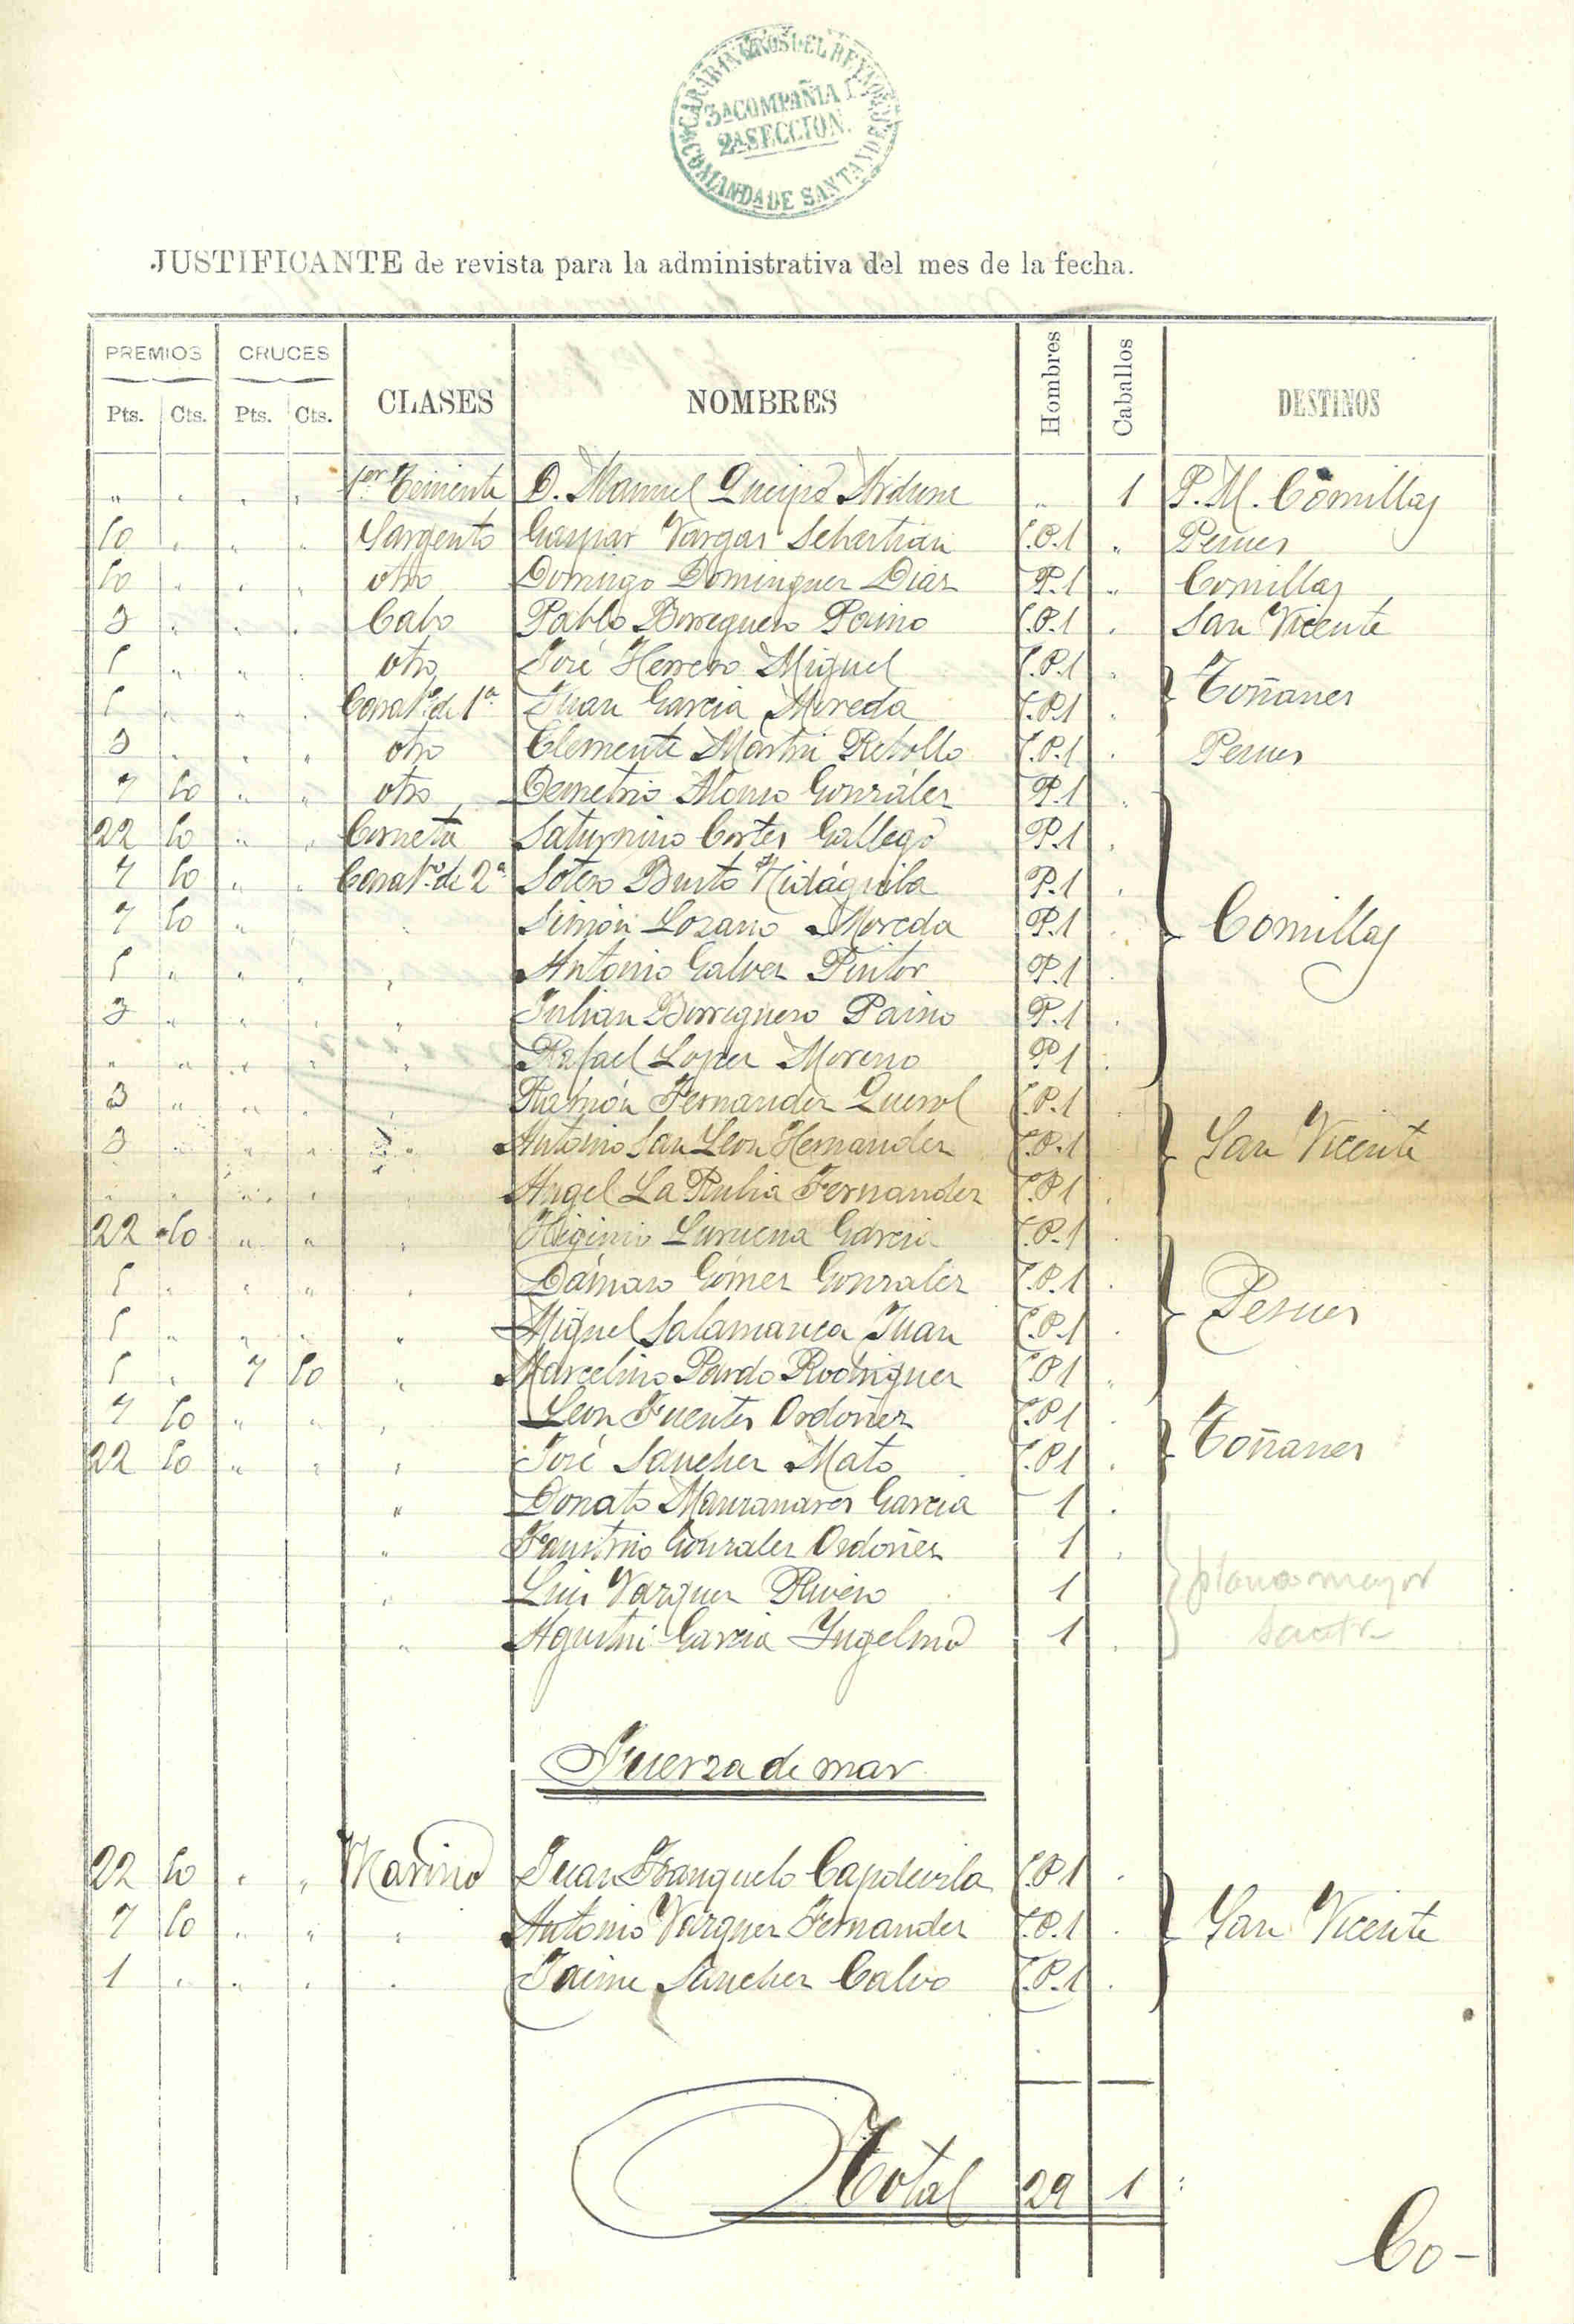 CARABINEROS DEL REYNO
3ª COMPAÑIA
2ª SECCION.
COMANDª DE SANTANDER
JUSTIFICANTE de revista para la administrativa del mes de la fecha.
PREMIOS CRUCES CLASES NOMBRES Hombres Caballos DESTINOS
Pts. Cts. Pts. Cts.
" " " " 1er Teniente D. Manuel Queipo " 1 P. M. Comillas
10 " " " Sargento Gaspar Vargas Sebastian C.P.1 " Pesues
10 " " " otro Domingo Dominguez Diaz P.1 " Comillas
3 " " " Cabo Pablo Borreguero Paino C.P.1 " San Vicente
5 " " " otro José Herrero Miguel C.P.1 " Toñanes
5 " " " Carabº de 1ª Juan Garcia Moreda C.P.1 "
3 " " " otro Clemente Martin Rebollo C.P.1 " Pesues
7 50 " " otro Demetrio Alonso González P.1 "
22 50 " " Corneta Saturnino Cortes Gallego P.1 "
7 50 " " Carabº de 2ª Sotero Busto Nidáguila P.1 "
7 50 " " " Simón Lozano Moreda P.1 " Comillas
5 " " " " Antonio Galvez Pintor P.1 "
3 " " " " Julian Borreguero Paino P.1 "
" " " " " Rafael Lopez Moreno P.1 "
3 " " " " Ramón Fernandez Querol C.P.1 "
3 " " " " Antonio San Leon Hernandez C.P.1 " San Vicente
" " " " " Angel La Rubia Fernandez C.P.1 "
22 50 " " " Higinio Lurueña Garcia C.P.1 "
5 " " " " Dámaso Gómez Gonzalez C.P.1 "
5 " " " " Miguel Salamanca Juan C.P.1 " Pesues
5 " 7 50 " Marcelino Pardo Rodriguez C.P.1 "
7 50 " " " Leon Fuentes Ordoñez C.P.1 "
22 50 " " " José Sanchez Mato C.P.1 " Toñanes
" Donato Manzanares Garcia 1 "
" Faustino Gonzalez Ordoñez 1 "
" Luis Vazquez Rivero 1 plana mayor
" Agustin Garcia Yngelmo 1 "
Fuerza de mar
22 50 " " Marino Juan Franquelo Capdevila C.P.1 "
7 50 " " " Antonio Vazquez Fernandez C.P.1 " San Vicente
1 " " " " Jaime Sanchez Calvo C.P.1 "
Total 29 1
Co-